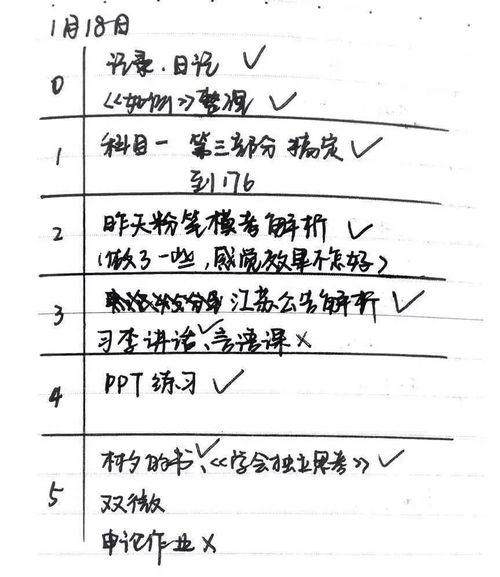 1月18日
0 记录.日记 ✓
《》整理 ✓
1 科目一 第三部分 搞定 ✓
到176
2 昨天粉笔模考解析 ✓
(做了一些,感觉效果不怎好)
3 江苏公告解析 ✓
习李讲话✓、言语课×
4 PPT练习 ✓
的书✓、《学会独立思考》✓
5 双微
申论作业×